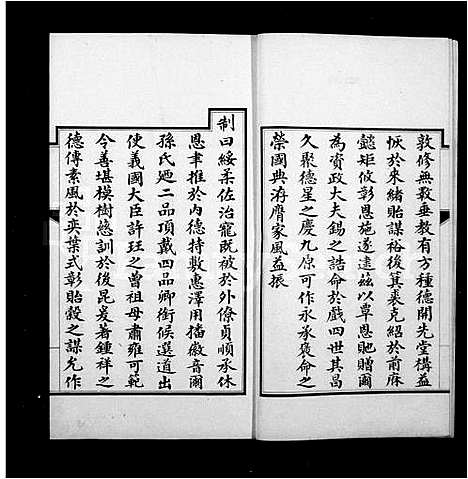 敦修無斁垂教有方種德開先堂構益
恢於來緒貽謀裕後箕裘克紹於前庥
懿矩攸彰恩施遂逮茲以覃恩貤贈爾
為資政大夫錫之誥命於戲四世其昌
久聚德星之慶九原可作永承褒命之
榮國典洊膺家風益振
制曰綏柔佐治寵既被於外僚貞順承休
恩聿推於内德持敷惠澤用播徽音爾
孫氏廼二品頂戴四品卿銜候選道出
使義國大臣許玨之曾祖母肅雍可範
令善堪模樹慈訓於後昆爰著鍾祥之
德傳素風於奕葉式彰貽穀之謀允作